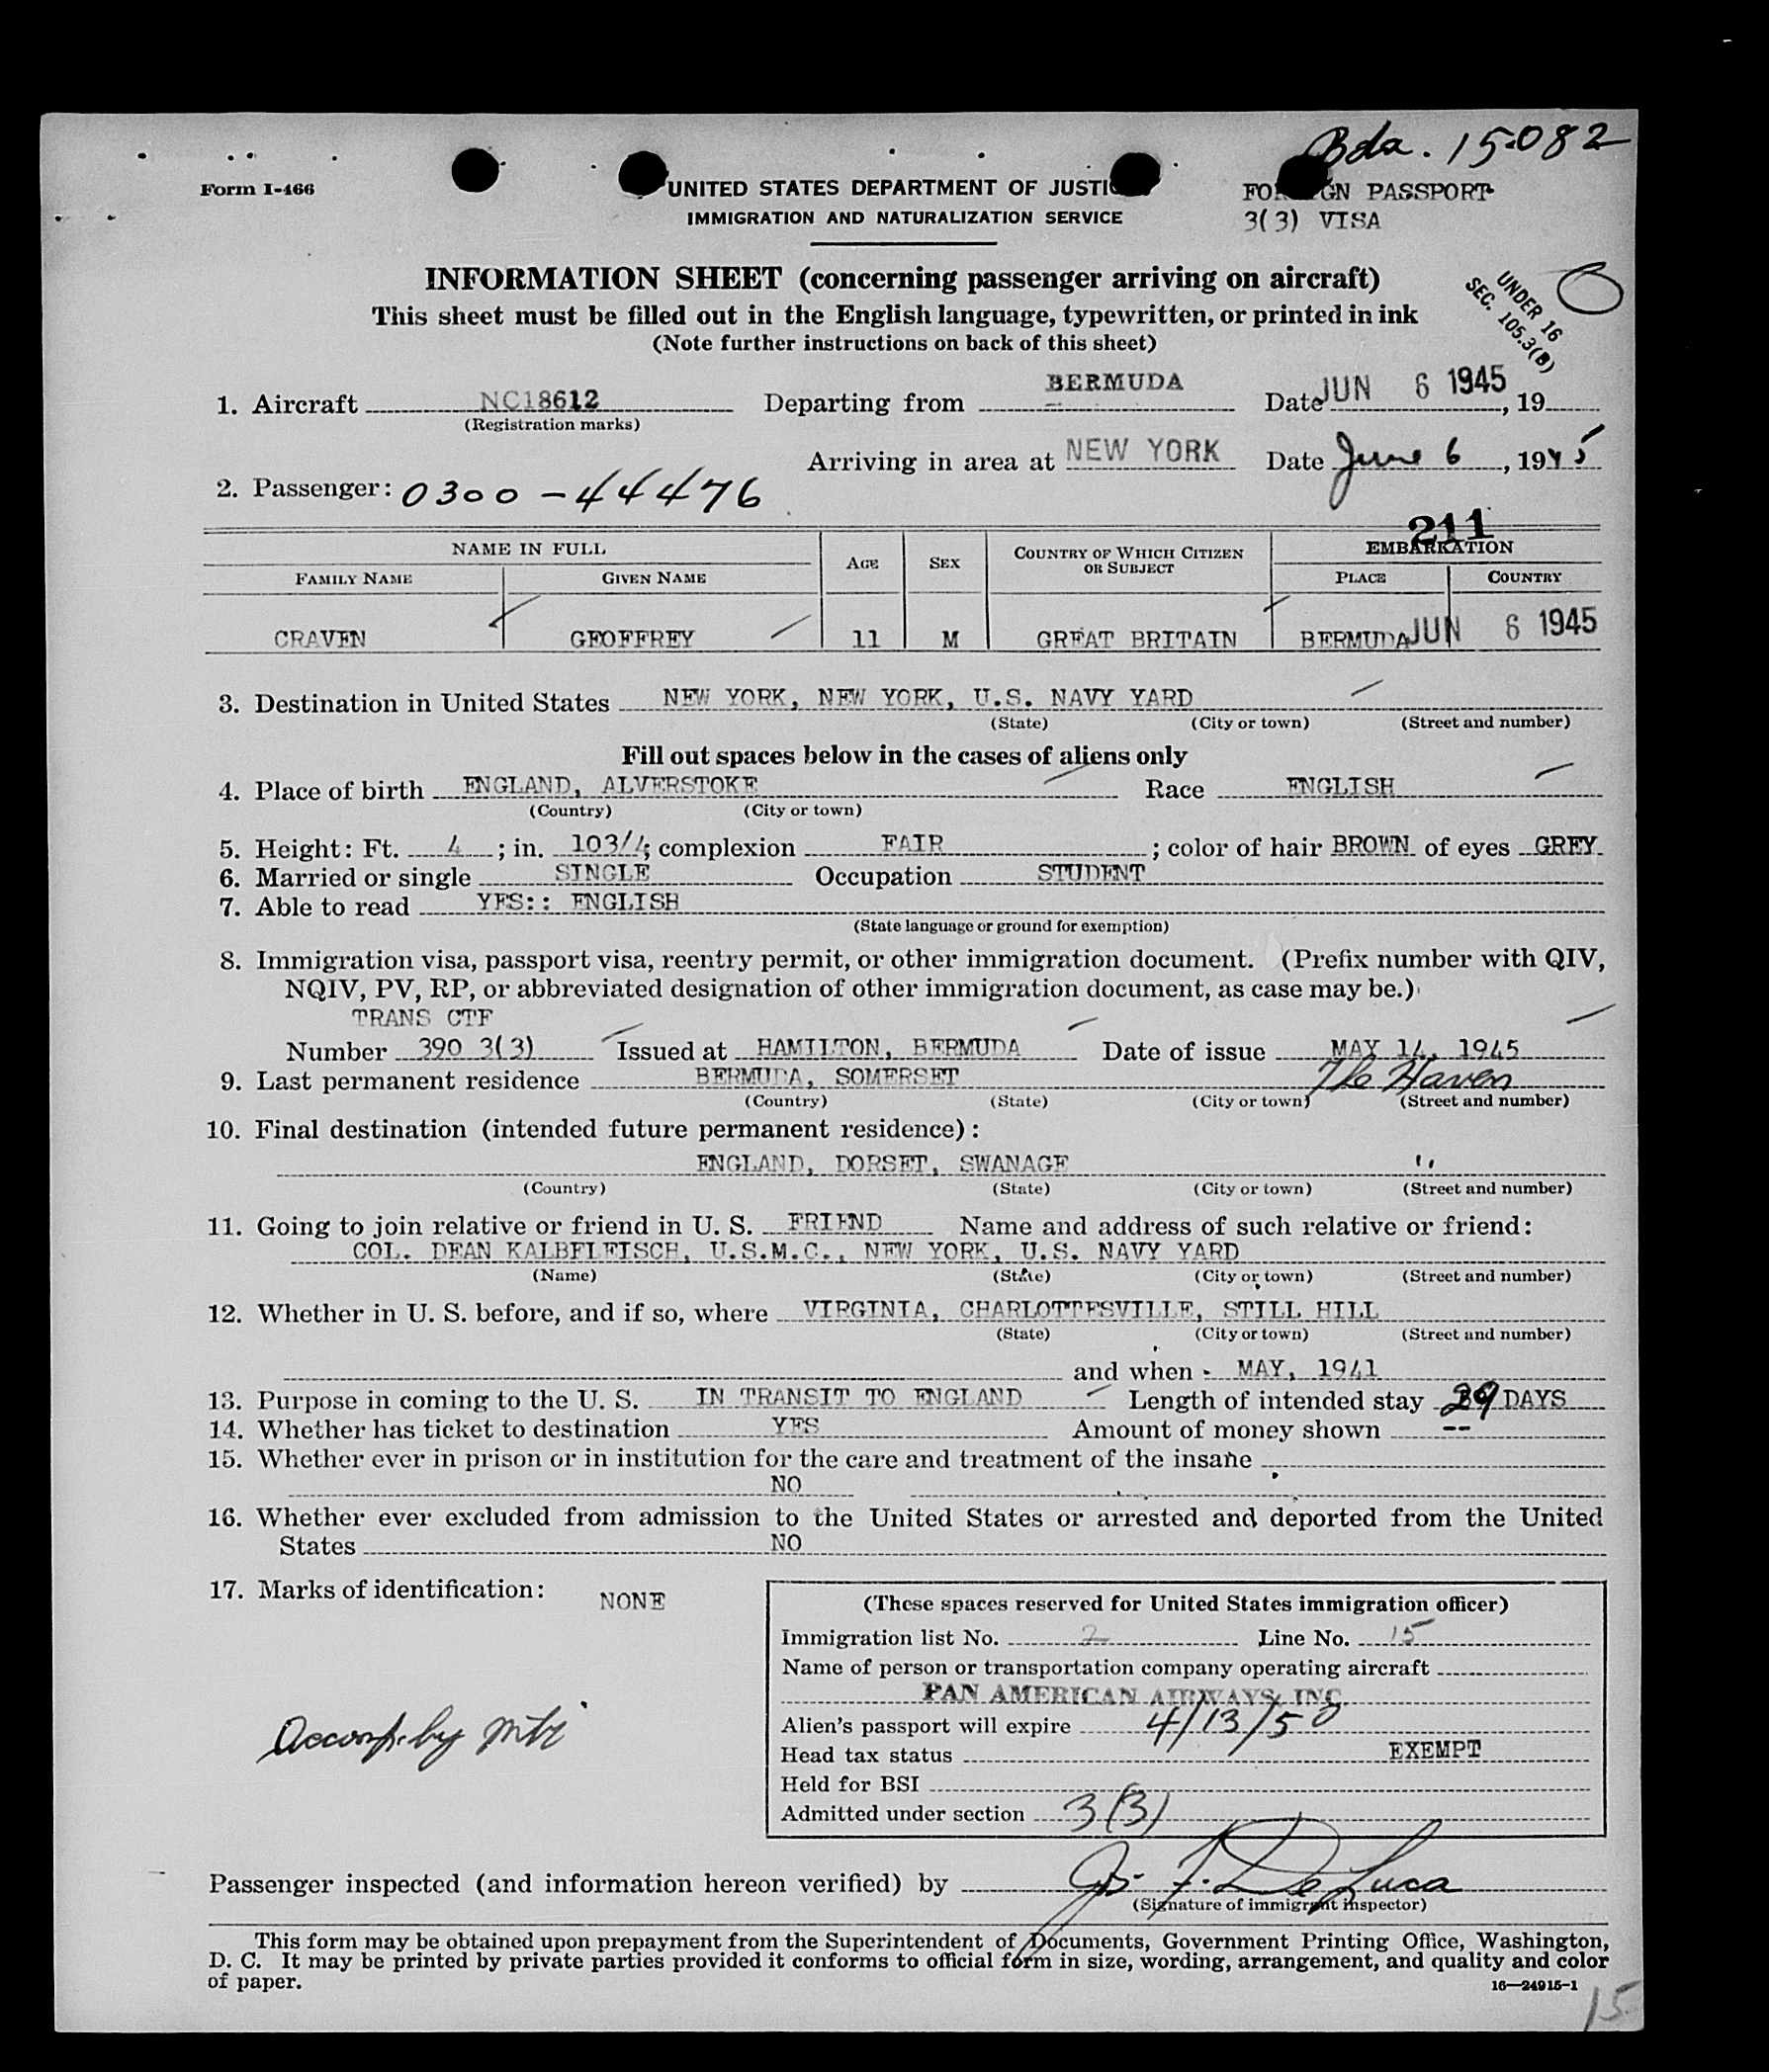 Bda. 15082
Form I-466
UNITED STATES DEPARTMENT OF JUSTI
IMMIGRATION AND NATURALIZATION SERVICE
FO GN PASSPORT
3(3) VISA
INFORMATION SHEET (concerning passenger arriving on aircraft)
UNDER 16
SEC. 105.3(B)
This sheet must be filled out in the English language, typewritten, or printed in ink
(Note further instructions on back of this sheet)
1. Aircraft NC18612 Departing from BERMUDA Date JUN 6 1945, 19
(Registration marks)
Arriving in area at NEW YORK Date June 6, 1945
2. Passenger: 0300-44476
211
NAME IN FULL AGE SEX COUNTRY OF WHICH CITIZEN OR SUBJECT EMBARKATION
FAMILY NAME GIVEN NAME PLACE COUNTRY
CRAVEN GEOFFREY 11 M GREAT BRITAIN BERMUDA JUN 6 1945
3. Destination in United States NEW YORK, NEW YORK, U.S. NAVY YARD
(State) (City or town) (Street and number)
Fill out spaces below in the cases of aliens only
4. Place of birth ENGLAND, ALVERSTOKE Race ENGLISH
(Country) (City or town)
5. Height: Ft. 4 ; in. 103/4; complexion FAIR ; color of hair BROWN of eyes GREY
6. Married or single SINGLE Occupation STUDENT
7. Able to read YES:: ENGLISH
(State language or ground for exemption)
8. Immigration visa, passport visa, reentry permit, or other immigration document. (Prefix number with QIV,
NQIV, PV, RP, or abbreviated designation of other immigration document, as case may be.)
TRANS CTF
Number 390 3(3) Issued at HAMILTON, BERMUDA Date of issue MAY 14, 1945
9. Last permanent residence BERMUDA, SOMERSET The Haven
(Country) (State) (City or town) (Street and number)
10. Final destination (intended future permanent residence):
ENGLAND, DORSET, SWANAGE "
(Country) (State) (City or town) (Street and number)
11. Going to join relative or friend in U. S. FRIEND Name and address of such relative or friend:
COL. DEAN KALBFLEISCH, U.S.M.C., NEW YORK, U.S. NAVY YARD
(Name) (State) (City or town) (Street and number)
12. Whether in U. S. before, and if so, where VIRGINIA, CHARLOTTESVILLE, STILL HILL
(State) (City or town) (Street and number)
and when - MAY, 1941
13. Purpose in coming to the U. S. IN TRANSIT TO ENGLAND Length of intended stay 29 DAYS
14. Whether has ticket to destination YES Amount of money shown --
15. Whether ever in prison or in institution for the care and treatment of the insane
NO
16. Whether ever excluded from admission to the United States or arrested and deported from the United
States NO
17. Marks of identification: NONE
(These spaces reserved for United States immigration officer)
Immigration list No. 2 Line No. 15
Name of person or transportation company operating aircraft
PAN AMERICAN AIRWAYS, INC.
Alien's passport will expire 4/13/50
Head tax status EXEMPT
Held for BSI
Admitted under section 3(3)
Accomp. by
Passenger inspected (and information hereon verified) by F. De Luca
(Signature of immigrant inspector)
This form may be obtained upon prepayment from the Superintendent of Documents, Government Printing Office, Washington,
D. C. It may be printed by private parties provided it conforms to official form in size, wording, arrangement, and quality and color
of paper.
16—24915-1
15